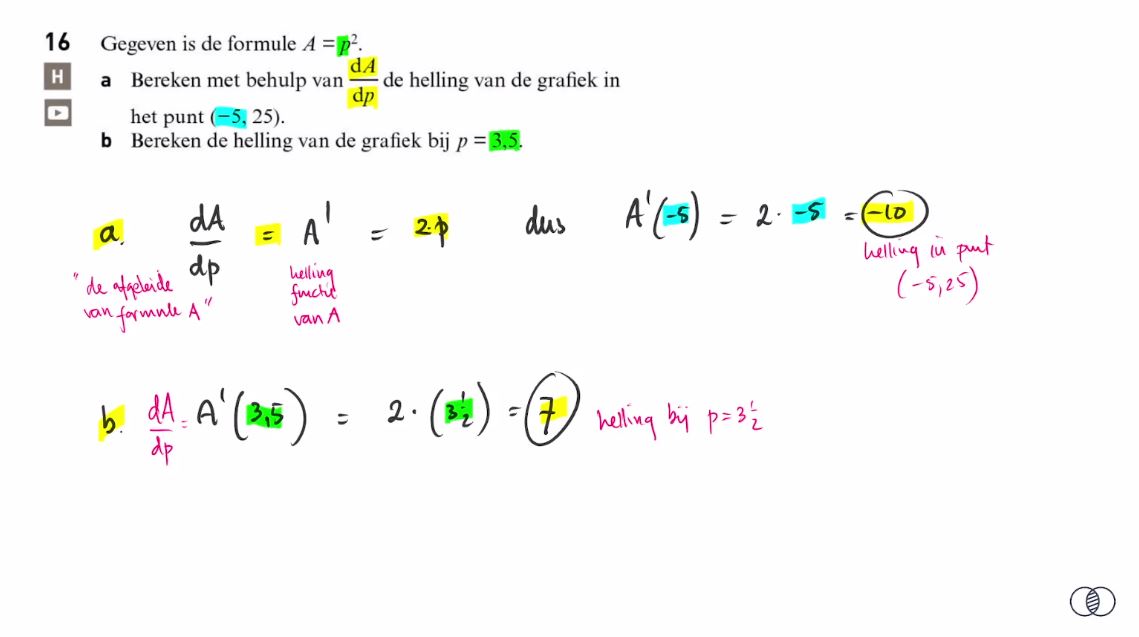 16 Gegeven is de formule A = p².
H
a Bereken met behulp van dA/dp de helling van de grafiek in
het punt (−5, 25).
b Bereken de helling van de grafiek bij p = 3,5.
a. dA/dp = A' = 2·p dus A'(-5) = 2 · -5 = -10
"de afgeleide
van formule A"
helling
functie
van A
helling in punt
(-5,25)
b. dA/dp = A'(3,5) = 2 · (3½) = 7 helling bij p = 3½